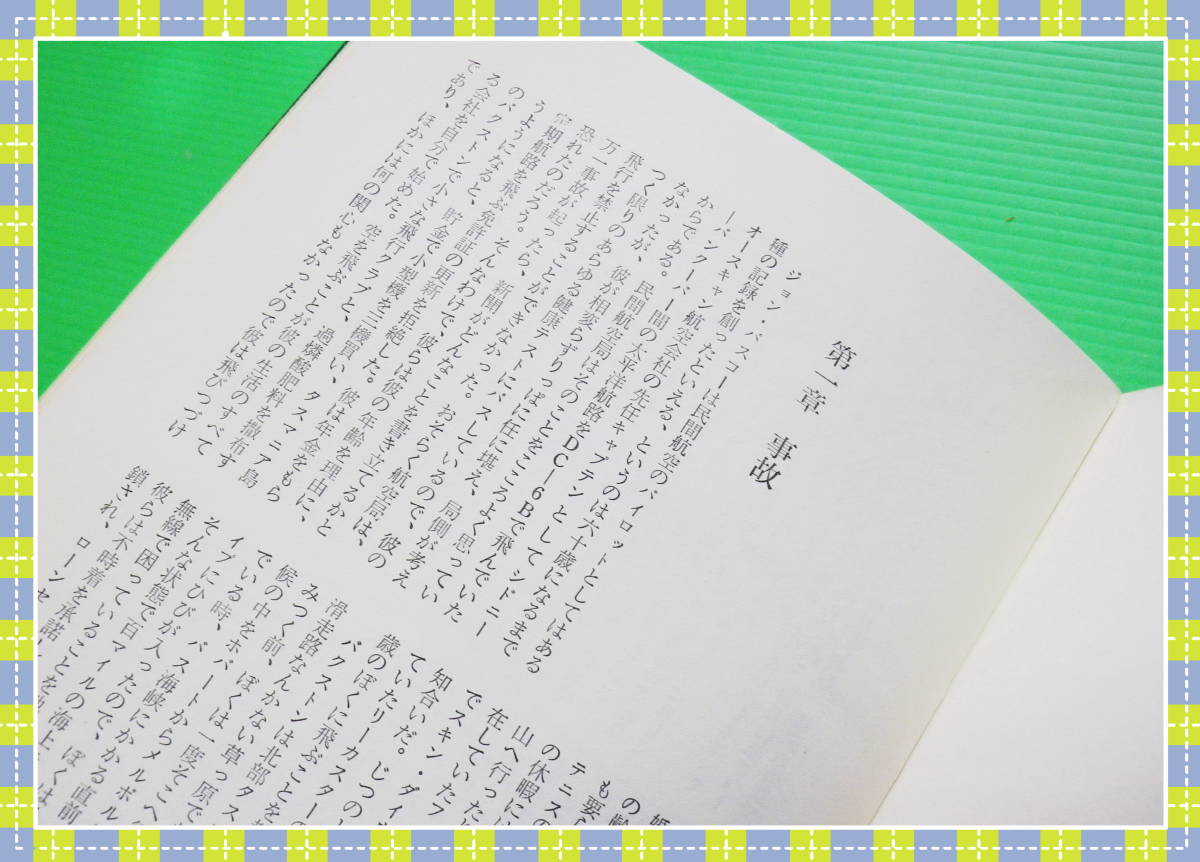 第一章　事故
ジョン・パスコーは民間航空のパイロットとしてはある
種の記録を創ったといえる、というのは六十歳になるまで
オースキャン航空会社の先任キャプテンとしてシドニー
ーバンクーバー間の太平洋航路をDC—6Bで飛んでいた
からである。民間航空局はそのことをこころよく思ってい
なかったが、彼が相変らずりっぱに任に堪え、局側が考え
つく限りのあらゆる健康テストにパスしているので、彼の
飛行を禁止することができなかった。おそらく航空局は、
万一事故が起ったら、新聞がどんなことを書き立てるかと
恐れたのだろう。そんなわけで、彼らは彼の年齢を理由に、
定期航路を飛ぶ免許証の更新を拒絶した。彼は年金をもら
うようになると、貯金で小型機を三機買い、タスマニア島
のバクストンで小さな飛行クラブと、過燐酸肥料を撒布す
る会社を自分で始めた。空を飛ぶことが彼の生活のすべて
であり、ほかには何の関心もなかったので彼は飛びつづけ
の齢
も要
テニスの
の休暇に
山へ行った
在していた
でスキン・ダイ
知合いだ。じつの
ていたリーカスターの
歳のぼくに飛ぶことを
バクストンは北部タス
滑走路なんかない草っ原で
みつく前、ぼくは一度そこへ
候の中をホバートからメルボル
でいる時、バス海峡にかかる直前
イブにひびが入ったので、ぼくは
そんな状態で百マイルの海上
無線で困っていることを地上
彼らは不時着を承諾
鎖され、ローンセ